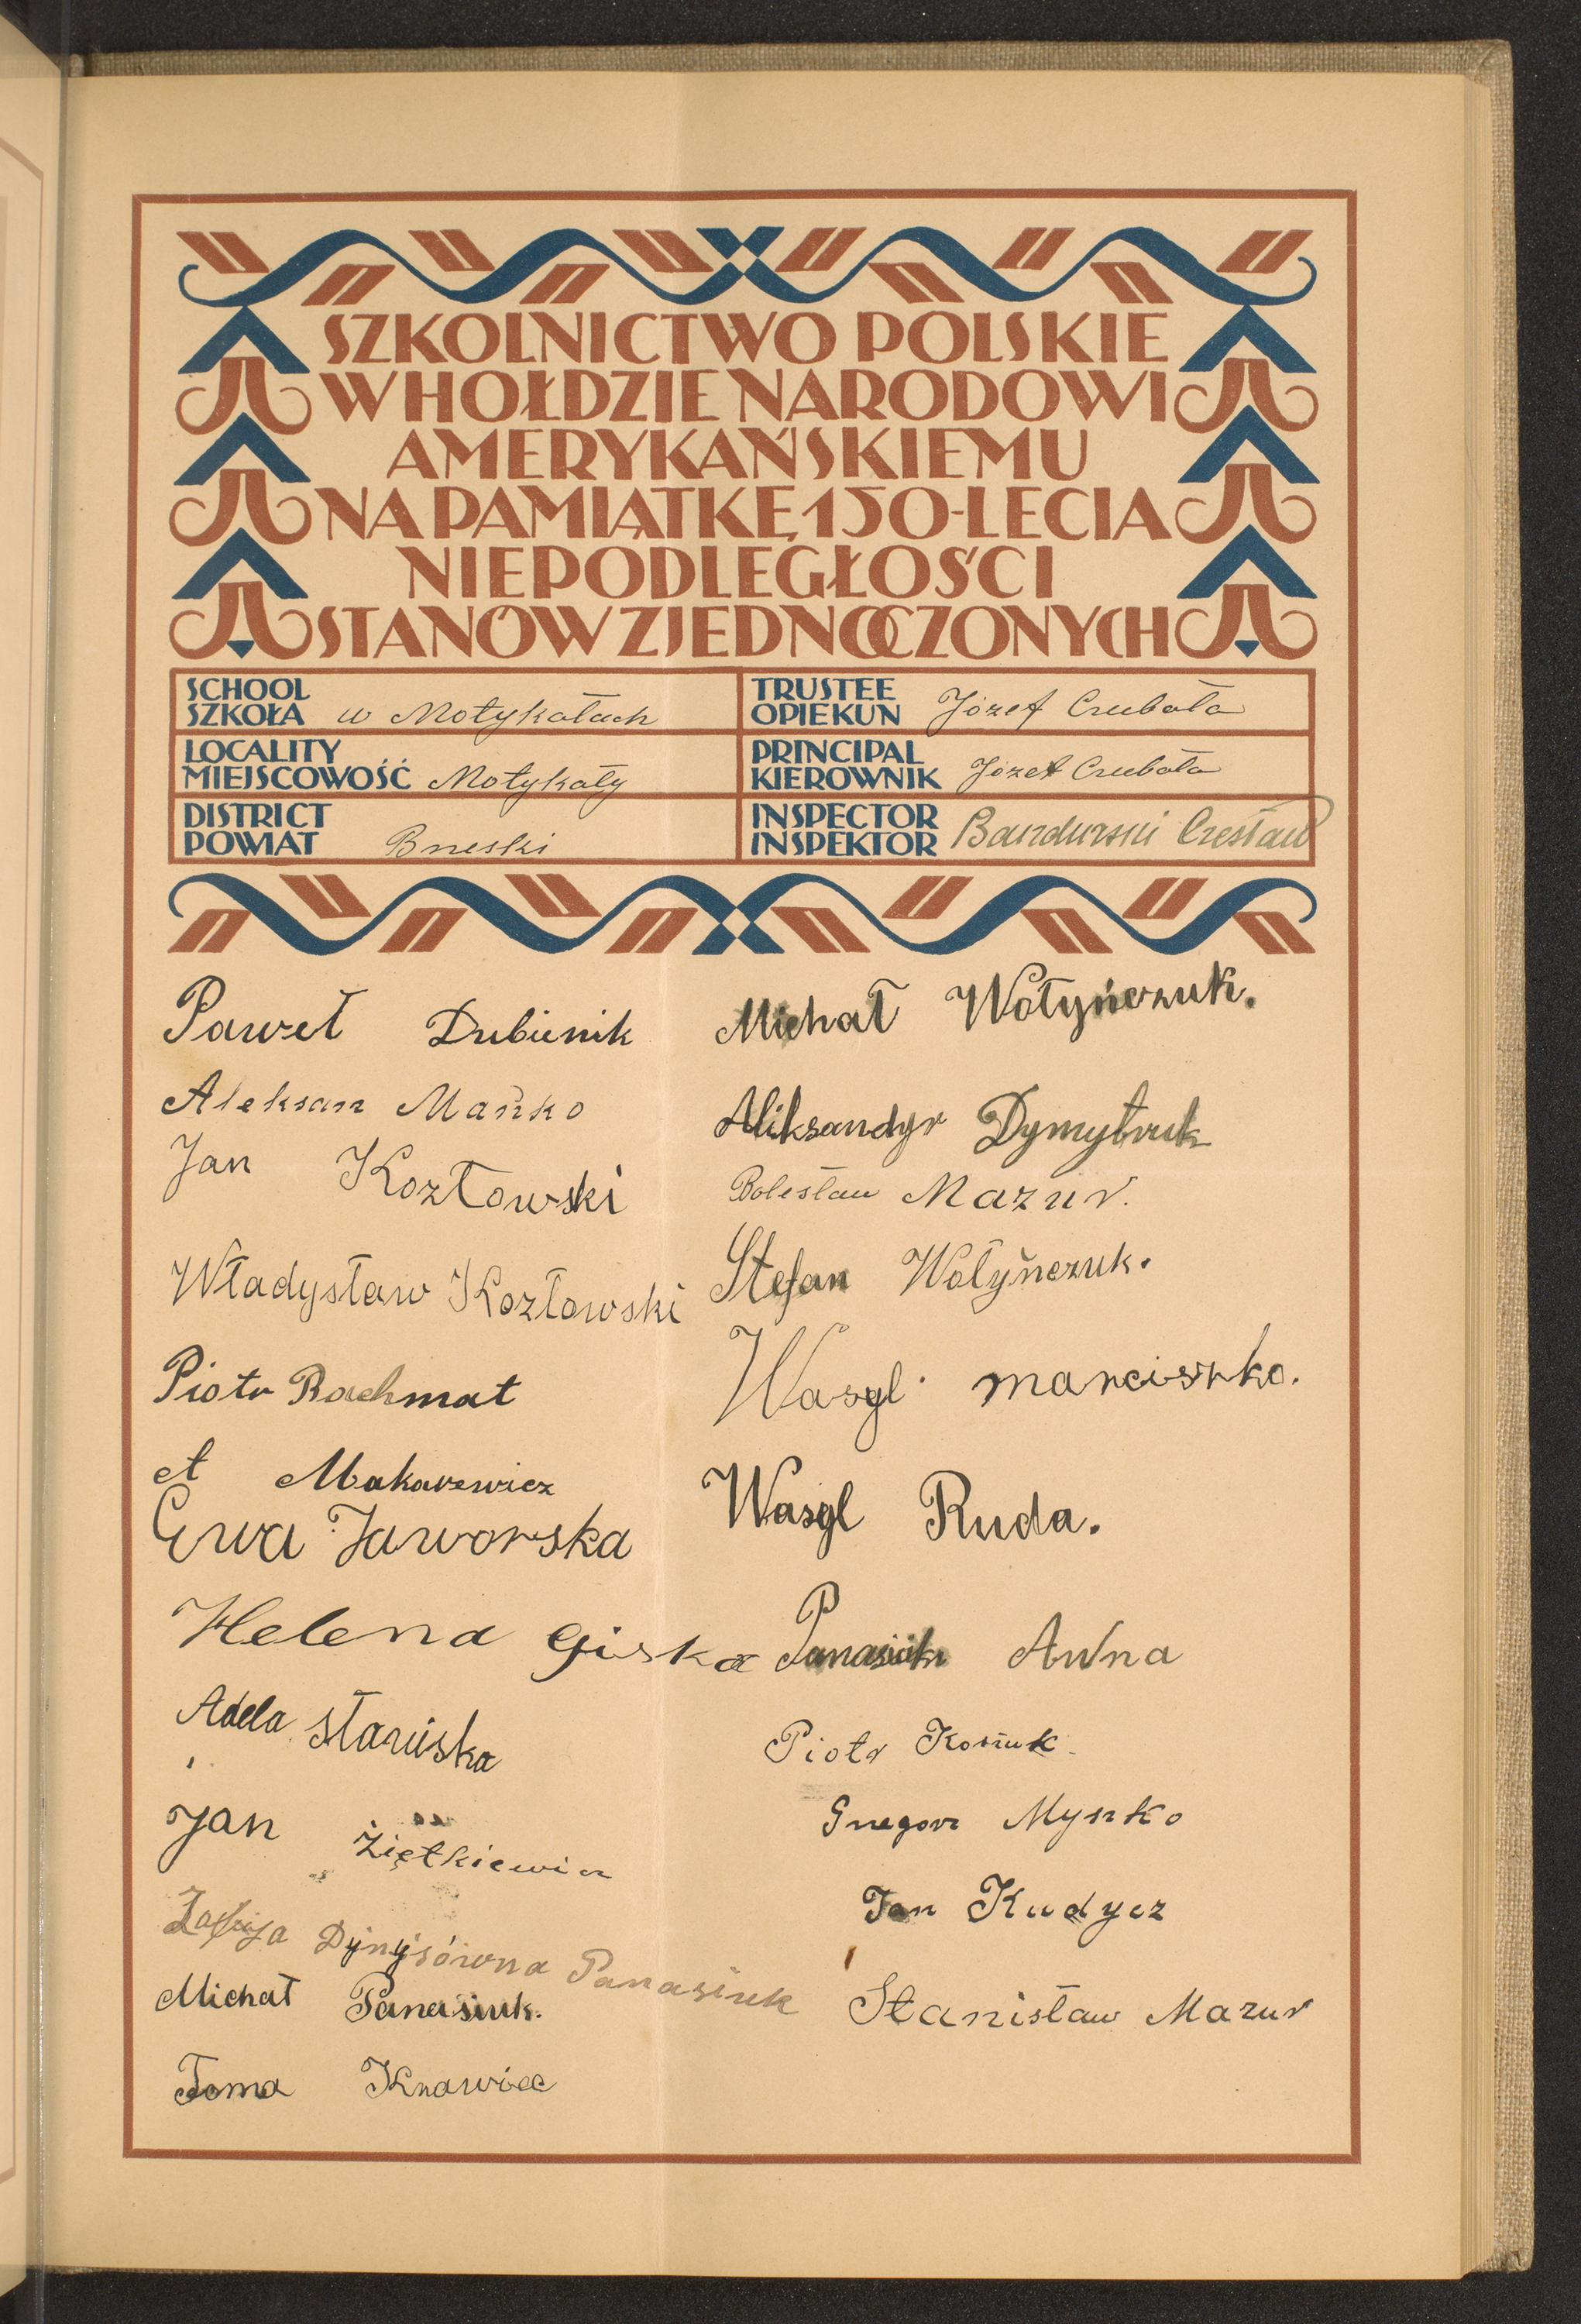 SZKOLNICTWO POLSKIE
W HOŁDZIE NARODOWI
AMERYKAŃSKIEMU
NA PAMIĄTKĘ 150-LECIA
NIEPODLEGŁOŚCI
STANÓW ZJEDNOCZONYCH
SCHOOL
SZKOŁA w Motykałach
TRUSTEE
OPIEKUN Józef Czubała
LOCALITY
MIEJSCOWOŚĆ Motykały
PRINCIPAL
KIEROWNIK Józef Czubała
DISTRICT
POWIAT Brzeski
INSPECTOR
INSPEKTOR Bandurski Czesław
Paweł Dubienik
Aleksan Mańko
Jan Kozłowski
Władysław Kozłowski
Piotr Rachmat
A Makarewicz
Ewa Jaworska
Helena Giska
Adela
Jan Ziętkiewicz
Dynysówna Panasiuk
Michał Panasiuk.
Toma Krawiec
Michał Wołyńczuk.
Aliksandyr Dymytruk
Bolesław Mazur.
Stefan Wołyńczuk.
Wasyl marciszko.
Wasyl Ruda.
Panasiuk Anna
Piotr Kosiuk
Grzegorz Myszko
Jan Kudycz
Stanisław Mazur